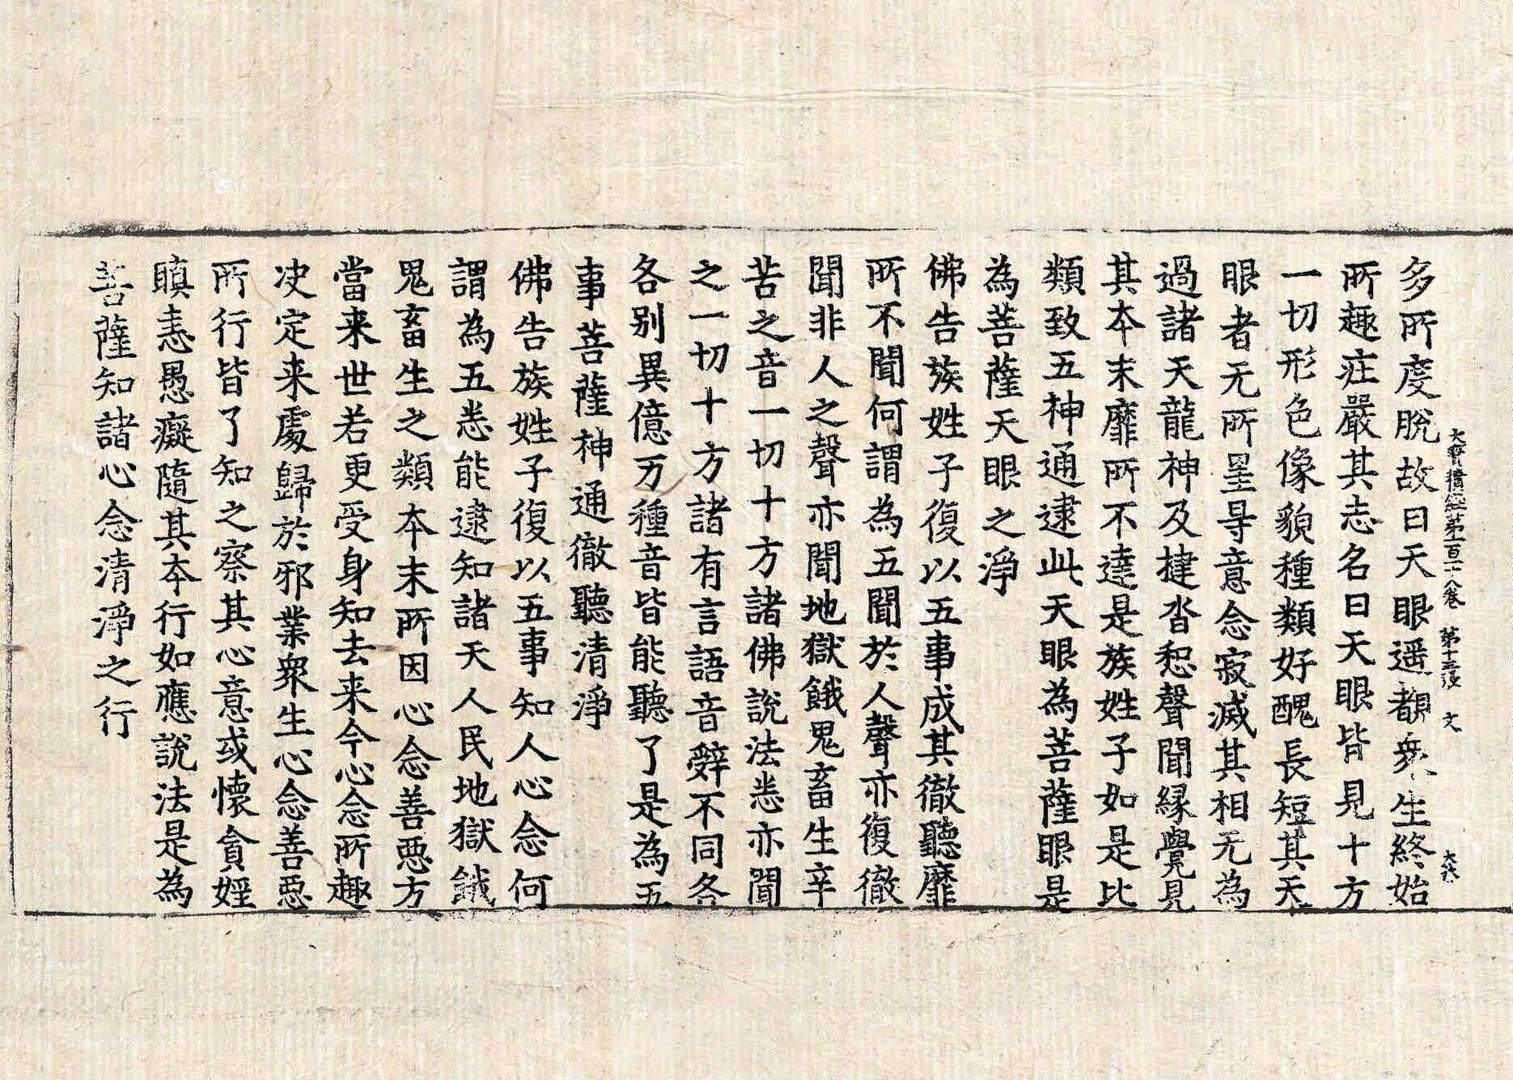 大寶積經第一百十八卷 第十三張 文
多所度脫故曰天眼遥覩衆生終始
所趣疘嚴其志名曰天眼皆見十方
一切形色像貌種類好醜長短其天
眼者无所罣㝵意念寂滅其相无為
過諸天龍神及揵沓惒聲聞縁覺見
其夲末靡所不達是族姓子如是比
類致五神通逮此天眼為菩薩眼是
為菩薩天眼之淨
佛告族姓子復以五事成其徹聽靡
所不聞何謂為五聞於人聲亦復徹
聞非人之聲亦聞地獄餓鬼畜生辛
苦之音一切十方諸佛說法悉亦聞
之一切十方諸有言語音辤不同各
各别異億万種音皆能聽了是為五
事菩薩神通徹聽清淨
佛告族姓子復以五事知人心念何
謂為五悉能逮知諸天人民地獄餓
鬼畜生之類夲末所因心念善惡方
當来世若更受身知去来今心念所趣
决定来處歸於邪業衆生心念善惡
所行皆了知之察其心意或懷貪婬
瞋恚愚癡隨其夲行如應說法是為
菩薩知諸心念清淨之行